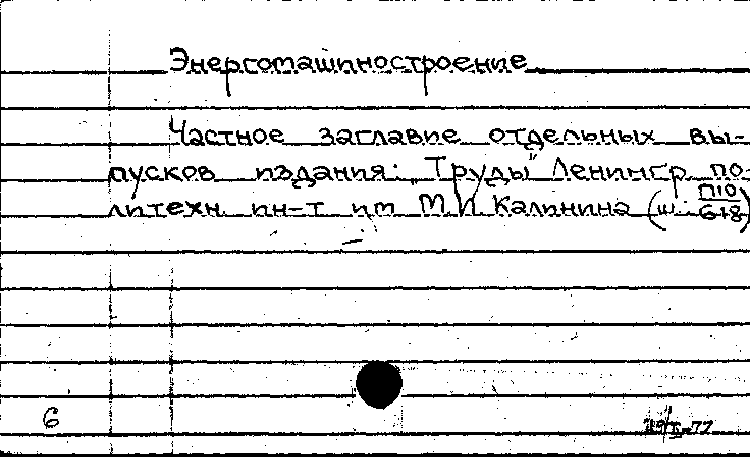 Энергомашиностроение
Частное заглавие отдельных вы-
пусков издания: „Труды" Ленингр. по-
литехн. ин-т им. М.И. Калинина (ш. П10/618)
6